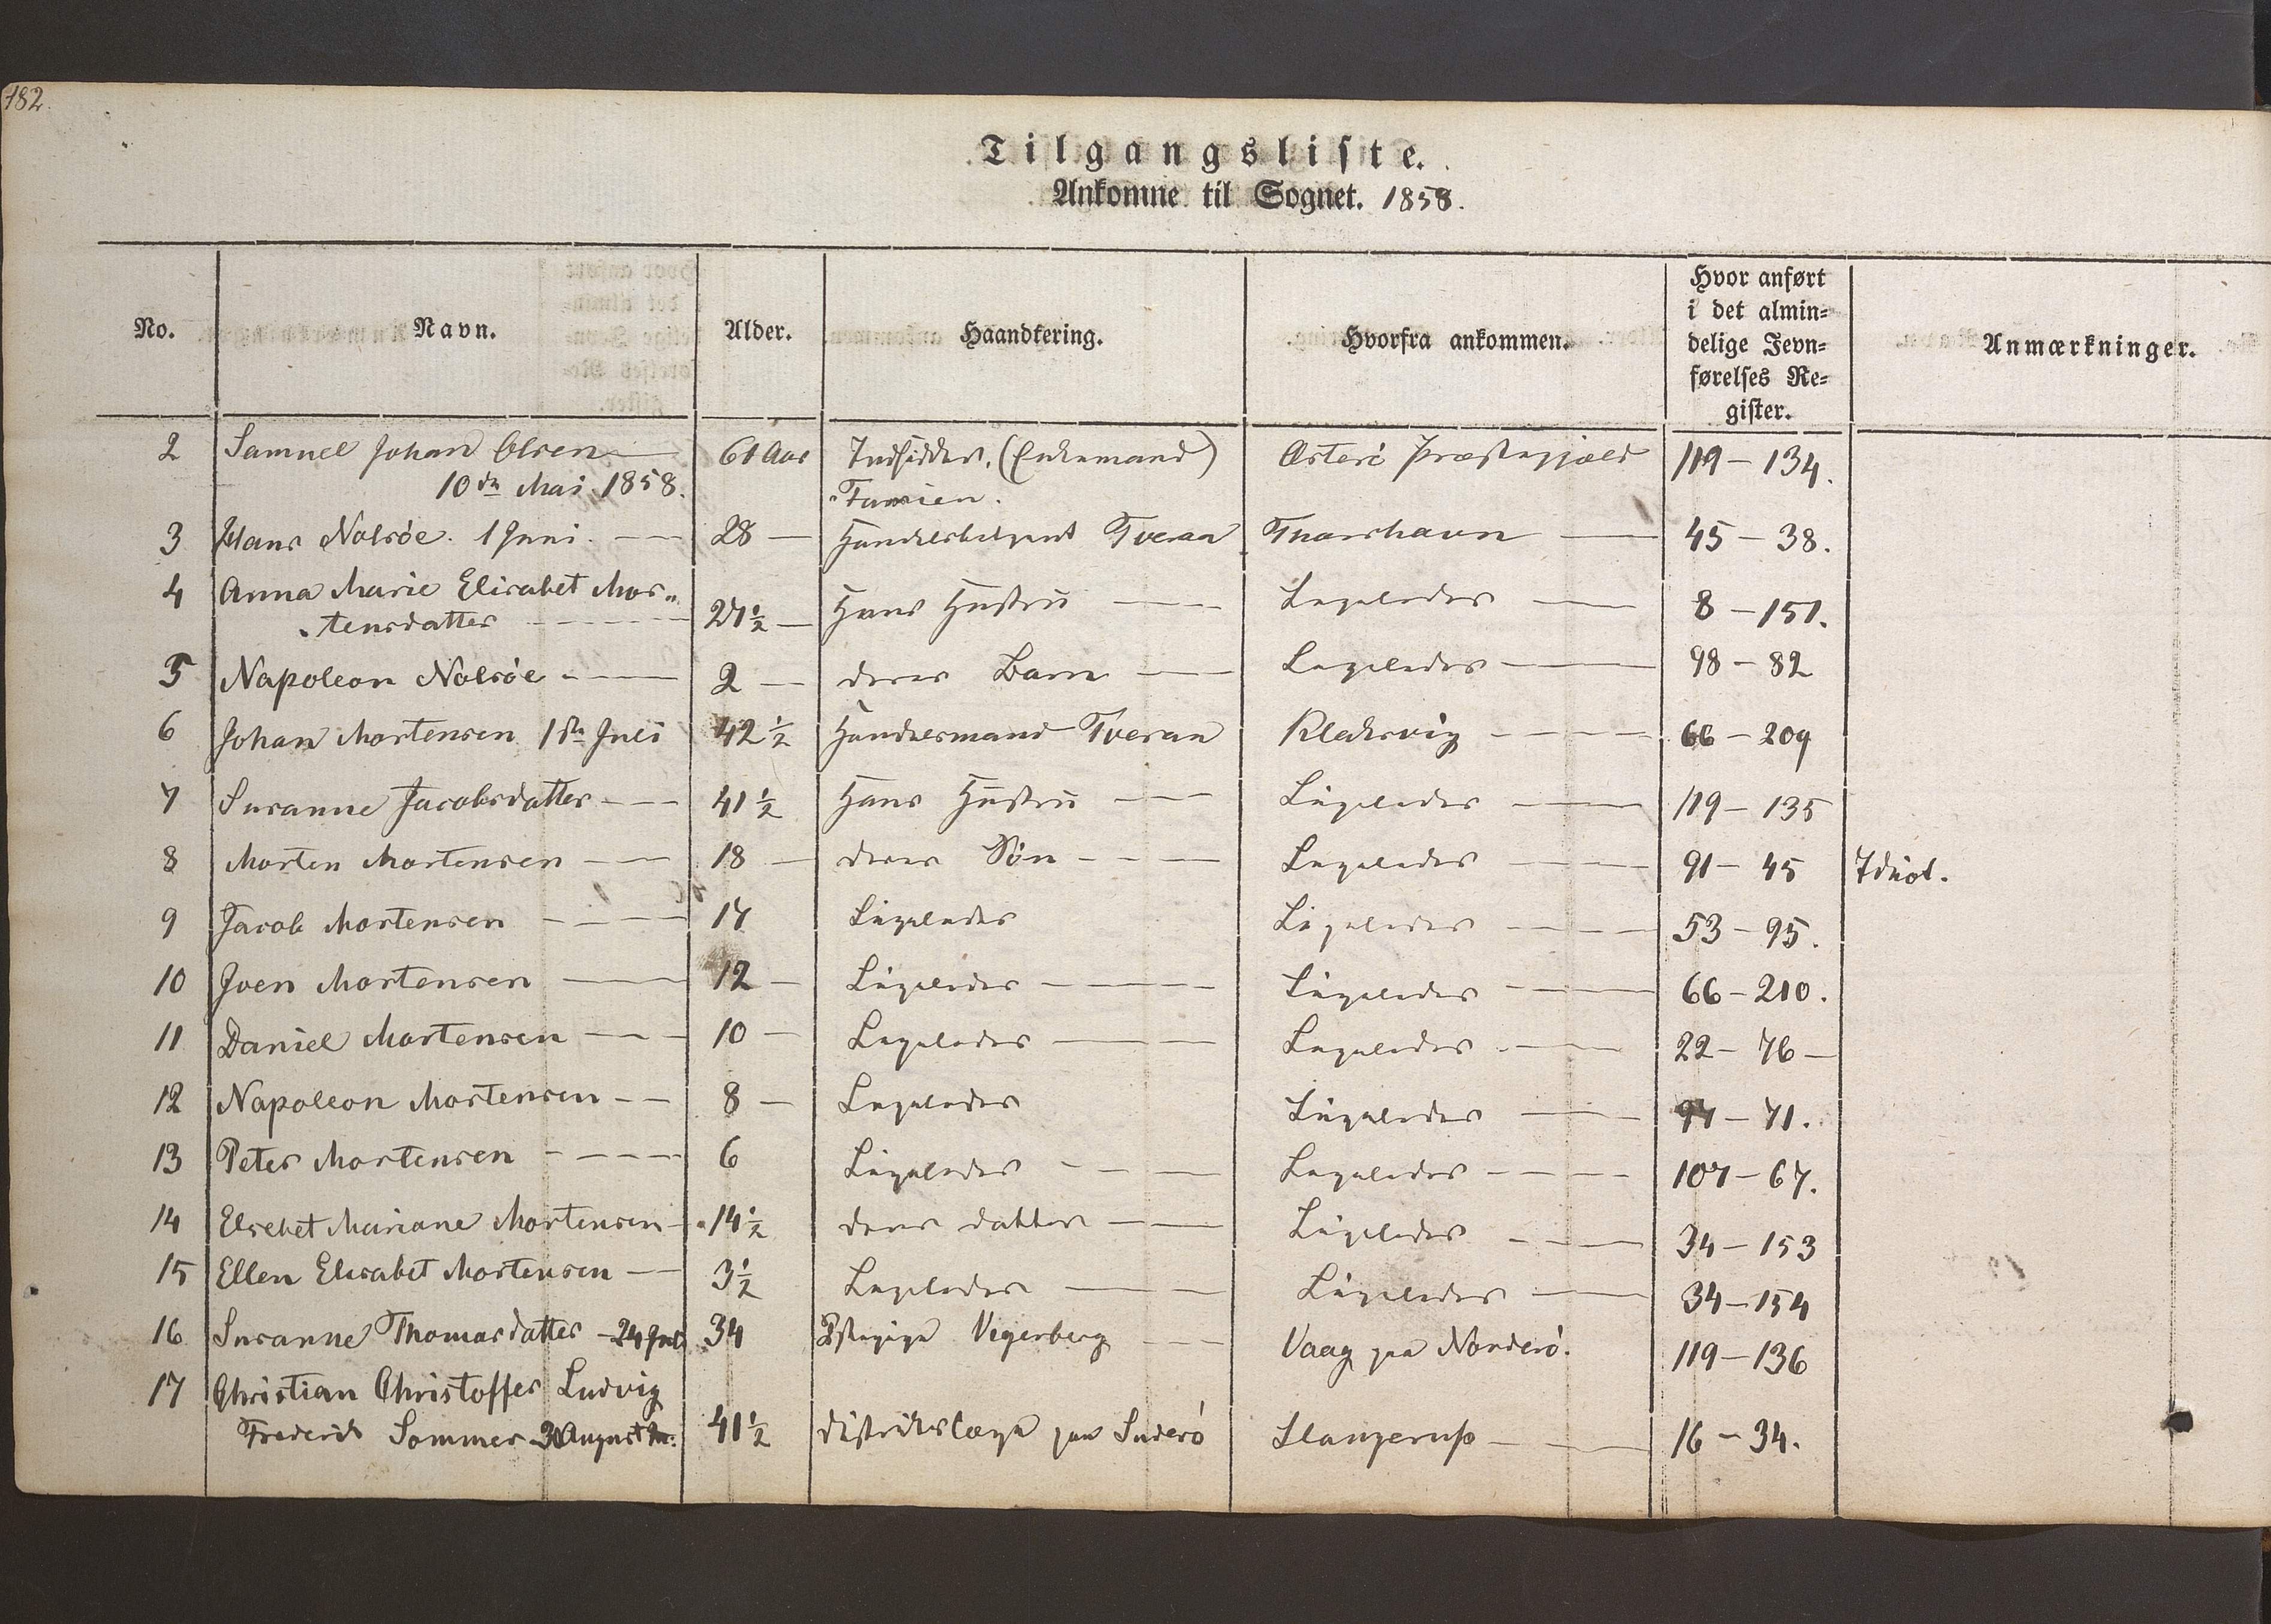 182.
Tilgangsliste.
Ankomne til Sognet. 1858.
No. Navn. Alder. Haandtering. Hvorfra ankommen. Hvor anført i det almindelige Jevnførelses Register. Anmærkninger.
2 Samuel Johan Olsen — 61 Aar Indsidder. (Enkemand) Østerö Præstegjæld 119 – 134.
10de Mai 1858.
3 Hans Nolsöe. 1 Juni. — 28 — Handelsbetjent Tveraa Thorshavn — 45 – 38.
4 Anna Marie Elisabet Mor„
„tensdatter — 27 ½ — Hans Hustru — Ligeledes — 8 – 151.
5 Napoleon Nolsöe — 2 — deres Barn — Ligeledes — 98 – 82
6 Johan Mortensen 1ste Juli 42 ½ Handelsmand Tveraa Klaksvig — 66 – 209
7 Susanne Jacobsdatter — 41 ½ Hans Hustru — Ligeledes — 119 – 135
8 Morten Mortensen — 18 — deres Sön — Ligeledes — 91 – 45 Idiot.
9 Jacob Mortensen — 17 Ligeledes Ligeledes — 53 – 95.
10 Joen Mortensen — 12 — Ligeledes — Ligeledes — 66 – 210.
11 Daniel Mortensen — 10 — Ligeledes — Ligeledes — 22 – 76 —
12 Napoleon Mortensen — 8 — Ligeledes Ligeledes — 97 – 71.
13 Peter Mortensen — 6 Ligeledes — Ligeledes — 107 – 67.
14 Elsebet Mariane Mortensen — 14 ½ deres datter — Ligeledes — 34 – 153
15 Ellen Elisabet Mortensen — 3 ½ Ligeledes — Ligeledes — 34 – 154
16 Susanne Thomasdatter – 24 Juli 34 Vegerberg — Vaag paa Norderö. 119 – 136
17 Christian Christoffer Ludvig
Frederik Sommer 30 August 41 ½ distriktslæge paa Suderö Slangerup — 16 – 34.